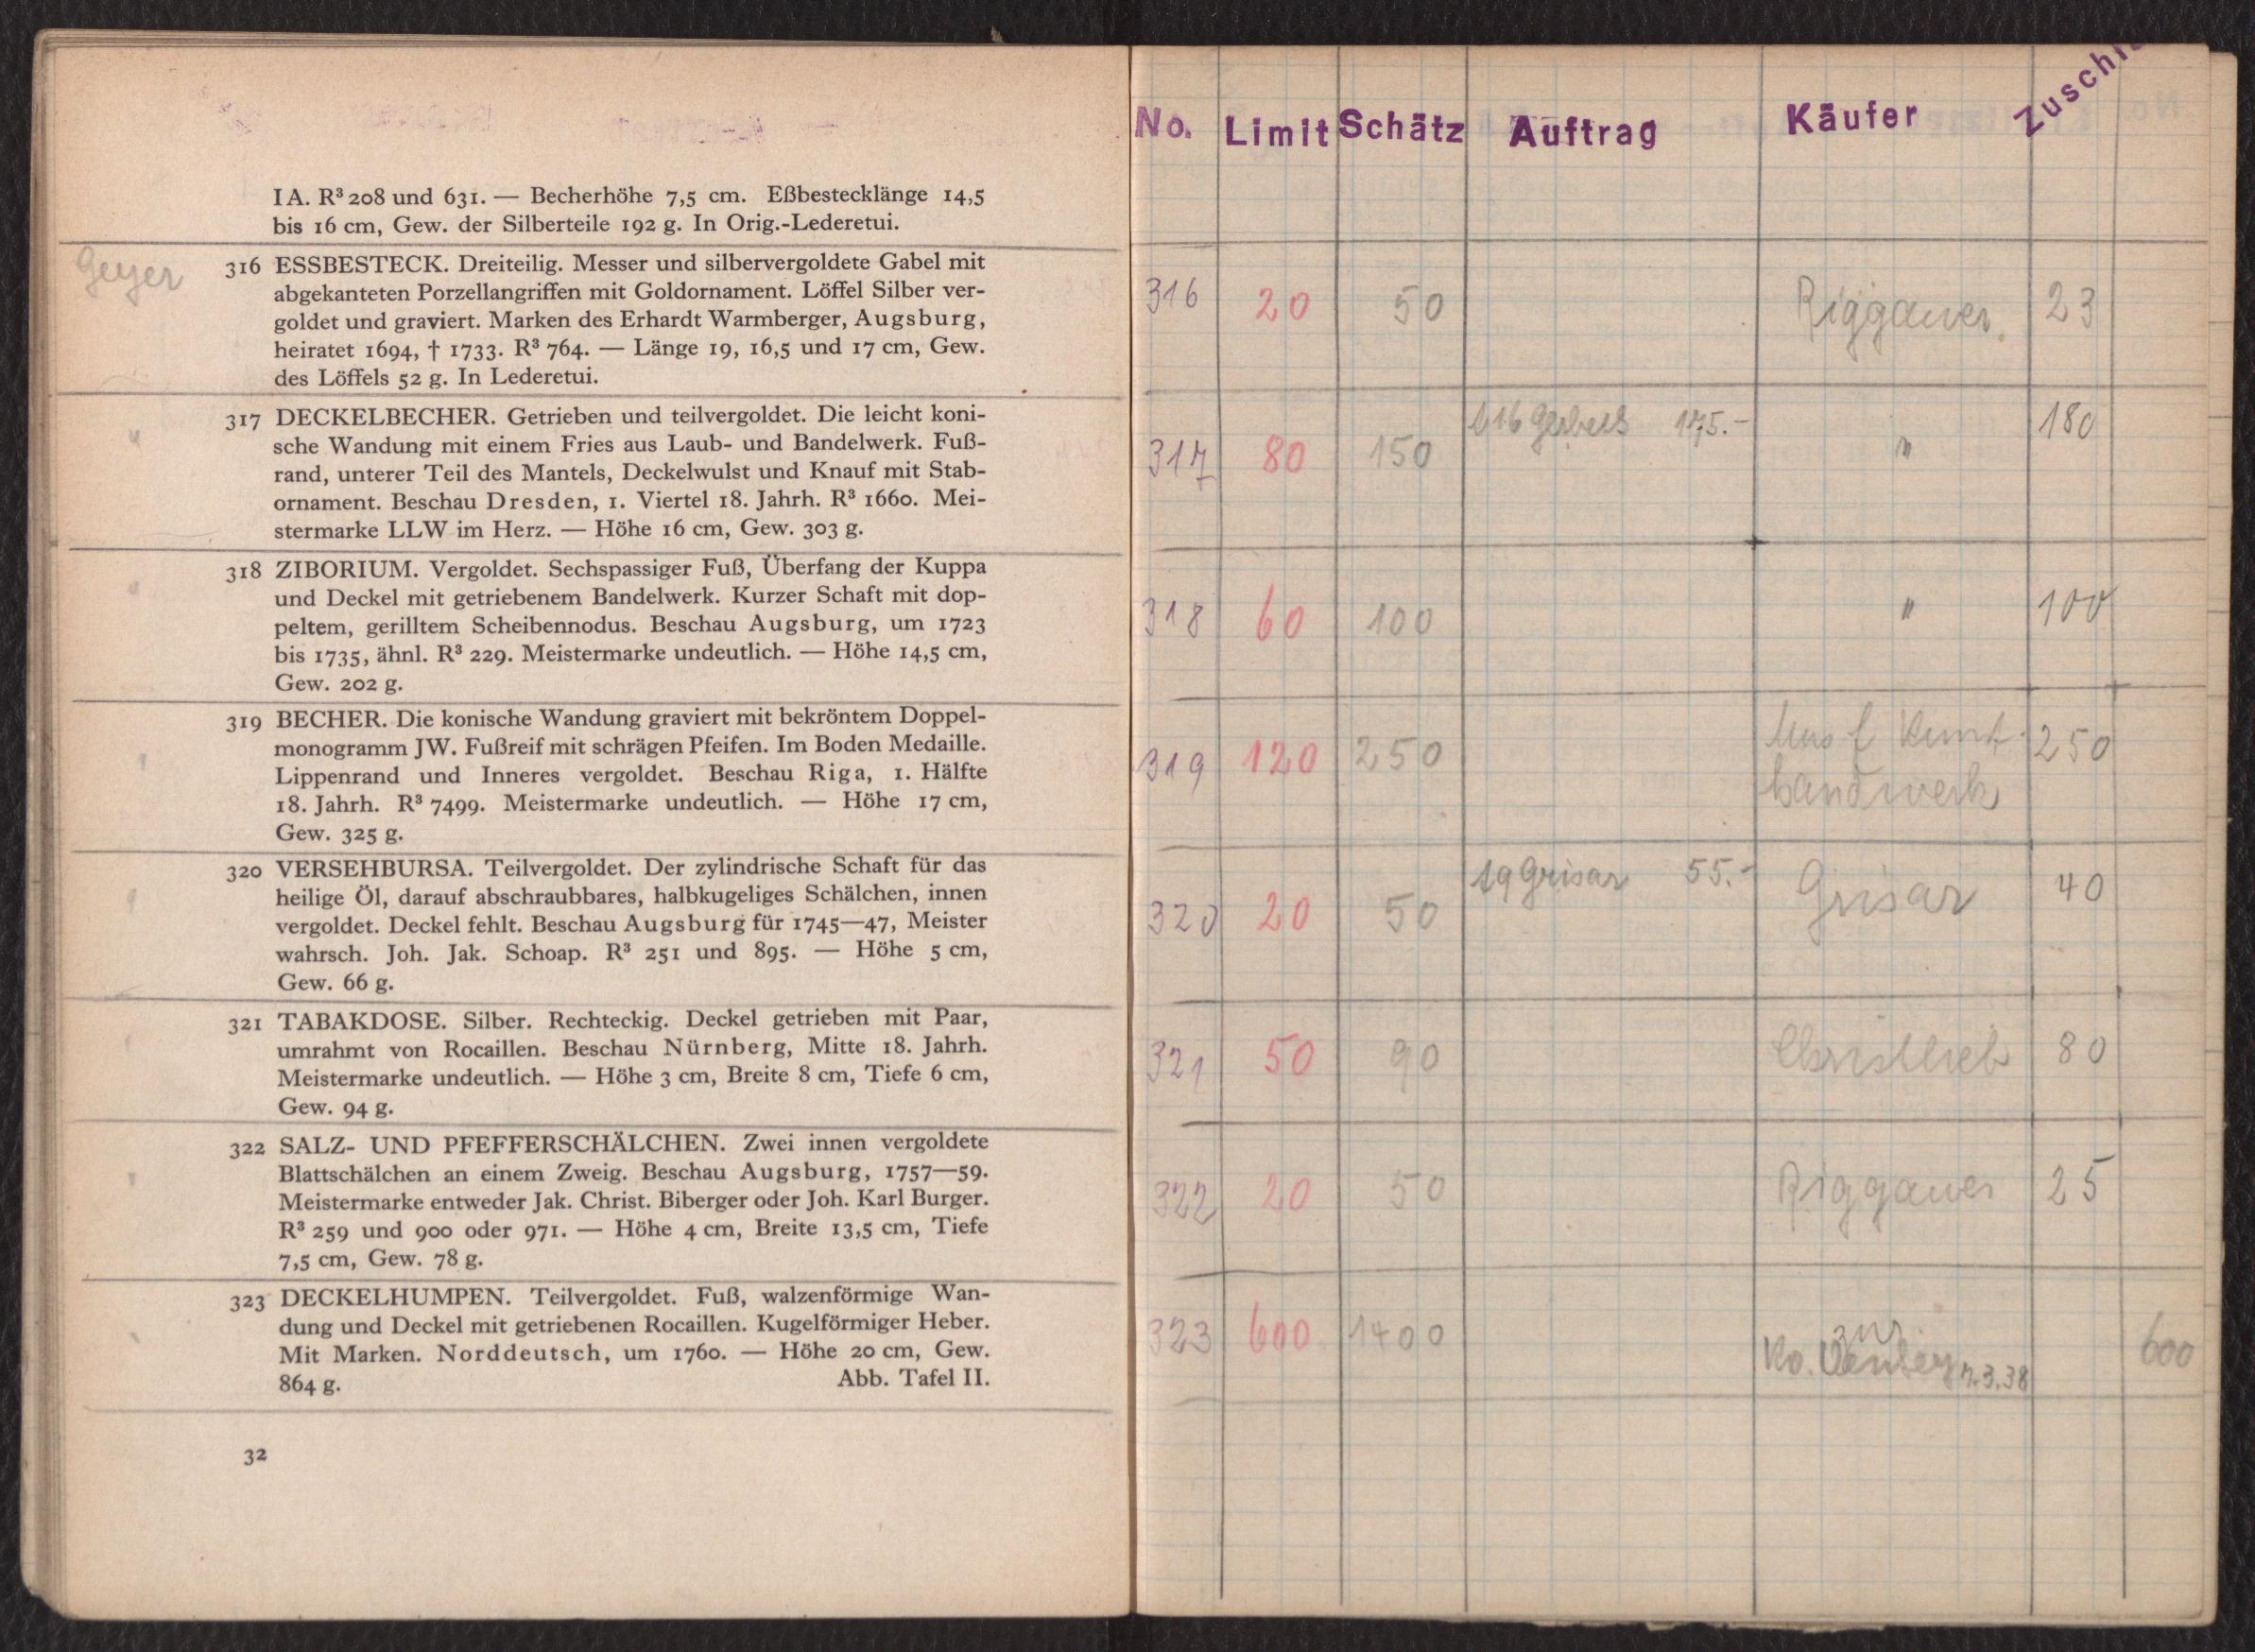 I A. R³ 208 und 631. — Becherhöhe 7,5 cm. Eßbestecklänge 14,5
bis 16 cm, Gew. der Silberteile 192 g. In Orig.-Lederetui.
Geyer
316 ESSBESTECK. Dreiteilig. Messer und silbervergoldete Gabel mit
abgekanteten Porzellangriffen mit Goldornament. Löffel Silber ver-
goldet und graviert. Marken des Erhardt Warmberger, Augsburg,
heiratet 1694, † 1733. R³ 764. — Länge 19, 16,5 und 17 cm, Gew.
des Löffels 52 g. In Lederetui.
"
317 DECKELBECHER. Getrieben und teilvergoldet. Die leicht koni-
sche Wandung mit einem Fries aus Laub- und Bandelwerk. Fuß-
rand, unterer Teil des Mantels, Deckelwulst und Knauf mit Stab-
ornament. Beschau Dresden, 1. Viertel 18. Jahrh. R³ 1660. Mei-
stermarke LLW im Herz. — Höhe 16 cm, Gew. 303 g.
"
318 ZIBORIUM. Vergoldet. Sechspassiger Fuß, Überfang der Kuppa
und Deckel mit getriebenem Bandelwerk. Kurzer Schaft mit dop-
peltem, gerilltem Scheibennodus. Beschau Augsburg, um 1723
bis 1735, ähnl. R³ 229. Meistermarke undeutlich. — Höhe 14,5 cm,
Gew. 202 g.
"
319 BECHER. Die konische Wandung graviert mit bekröntem Doppel-
monogramm JW. Fußreif mit schrägen Pfeifen. Im Boden Medaille.
Lippenrand und Inneres vergoldet. Beschau Riga, 1. Hälfte
18. Jahrh. R³ 7499. Meistermarke undeutlich. — Höhe 17 cm,
Gew. 325 g.
"
320 VERSEHBURSA. Teilvergoldet. Der zylindrische Schaft für das
heilige Öl, darauf abschraubbares, halbkugeliges Schälchen, innen
vergoldet. Deckel fehlt. Beschau Augsburg für 1745—47, Meister
wahrsch. Joh. Jak. Schoap. R³ 251 und 895. — Höhe 5 cm,
Gew. 66 g.
"
321 TABAKDOSE. Silber. Rechteckig. Deckel getrieben mit Paar,
umrahmt von Rocaillen. Beschau Nürnberg, Mitte 18. Jahrh.
Meistermarke undeutlich. — Höhe 3 cm, Breite 8 cm, Tiefe 6 cm,
Gew. 94 g.
"
322 SALZ- UND PFEFFERSCHÄLCHEN. Zwei innen vergoldete
Blattschälchen an einem Zweig. Beschau Augsburg, 1757—59.
Meistermarke entweder Jak. Christ. Biberger oder Joh. Karl Burger.
R³ 259 und 900 oder 971. — Höhe 4 cm, Breite 13,5 cm, Tiefe
7,5 cm, Gew. 78 g.
"
323 DECKELHUMPEN. Teilvergoldet. Fuß, walzenförmige Wan-
dung und Deckel mit getriebenen Rocaillen. Kugelförmiger Heber.
Mit Marken. Norddeutsch, um 1760. — Höhe 20 cm, Gew.
864 g. Abb. Tafel II.
32
No. Limit Schätz Auftrag Käufer Zuschl
316 20 50 Riggauer 23
317 80 150 175.- " 180
318 60 100 " 100
319 120 250 Mus f Kunst- 250
handwerk
320 20 50 19 Grisar 55.- Grisar 40
321 50 90 Christlieb 80
322 20 50 Riggauer 25
323 600 1400 zur. 600
Ko. 7.3.38